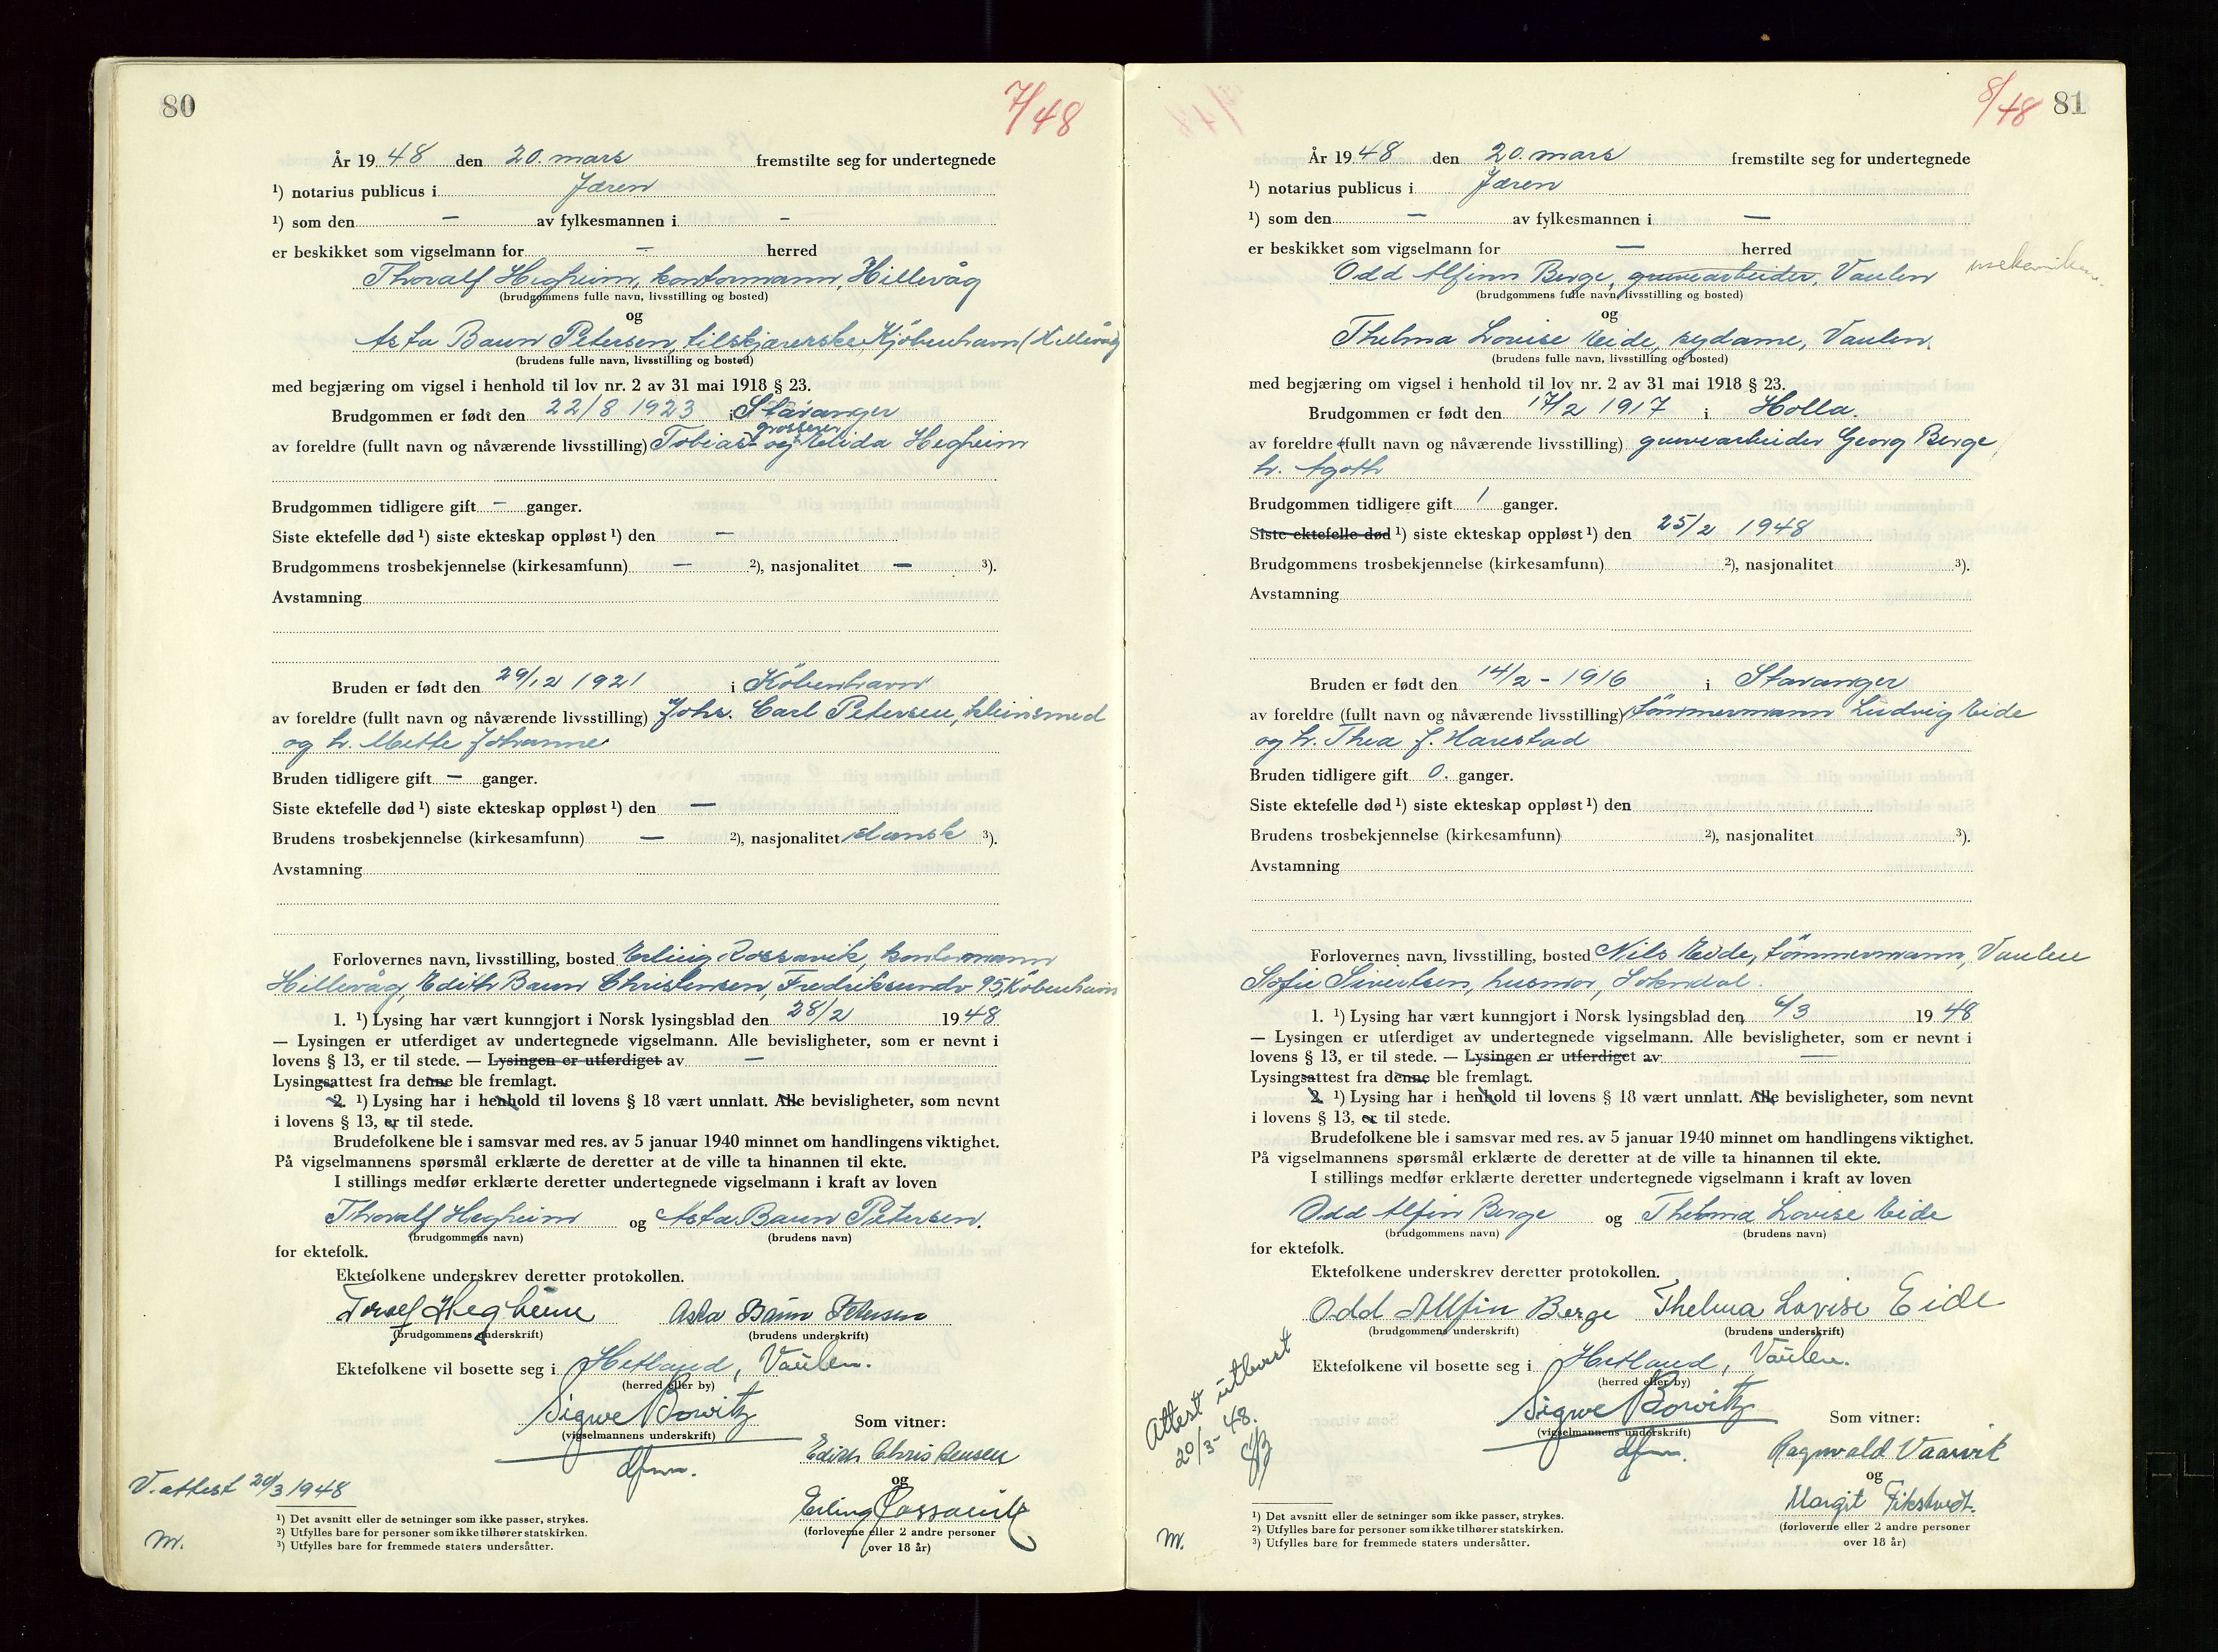 80
7/48
År 1948 den 20. mars fremstilte seg for undertegnede
¹) notarius publicus i Jæren
¹) som den – av fylkesmannen i –
er beskikket som vigselmann for – herred
Thoralf Hegheim, kontormann, Hillevåg
(brudgommens fulle navn, livsstilling og bosted)
og
Asta Baun Petersen, tilskjærerske, Kjöbenhavn (Hillevåg)
(brudens fulle navn, livsstilling og bosted)
med begjæring om vigsel i henhold til lov nr. 2 av 31 mai 1918 § 23.
Brudgommen er født den 22/8 1923 i Stavanger
grosserer
av foreldre (fullt navn og nåværende livsstilling) Tobias og Elida Hegheim
Brudgommen tidligere gift – ganger.
Siste ektefelle død ¹) siste ekteskap oppløst ¹) den –
Brudgommens trosbekjennelse (kirkesamfunn) – ²), nasjonalitet – ³).
Avstamning
Bruden er født den 29/12 1921 i Köbenhavn
av foreldre (fullt navn og nåværende livsstilling) Johs. Carl Petersen, kleinsmed
og h. Mette Johanne
Bruden tidligere gift – ganger.
Siste ektefelle død ¹) siste ekteskap oppløst ¹) den –
Brudens trosbekjennelse (kirkesamfunn) – ²), nasjonalitet dansk ³).
Avstamning
Forlovernes navn, livsstilling, bosted Erling Rossavik, kontormann
Hillevåg, Edith Baun Christensen, Fredrikssundv 95, Köbenhavn
1. ¹) Lysing har vært kunngjort i Norsk lysingsblad den 28/2 1948
— Lysingen er utferdiget av undertegnede vigselmann. Alle bevisligheter, som er nevnt i
lovens § 13, er til stede. — Lysingen er utferdiget av –
Lysingsattest fra denne ble fremlagt.
2. ¹) Lysing har i henhold til lovens § 18 vært unnlatt. Alle bevisligheter, som nevnt
i lovens § 13, er til stede.
Brudefolkene ble i samsvar med res. av 5 januar 1940 minnet om handlingens viktighet.
På vigselmannens spørsmål erklærte de deretter at de ville ta hinannen til ekte.
I stillings medfør erklærte deretter undertegnede vigselmann i kraft av loven
Thoralf Hegheim og Asta Baun Petersen.
(brudgommens navn) (brudens navn)
for ektefolk.
Ektefolkene underskrev deretter protokollen.
Toralf Hegheim Asta Baun Petersen
(brudgommens underskrift) (brudens underskrift)
Ektefolkene vil bosette seg i Hetland, Vaulen.
(herred eller by)
Sigwe Bowitz Som vitner:
(vigselmannens underskrift)
dfm. Edith Christensen
og
V. attest 20/3 1948
Erling Rossavik
(forloverne eller 2 andre personer
over 18 år)
¹) Det avsnitt eller de setninger som ikke passer, strykes.
²) Utfylles bare for personer som ikke tilhører statskirken.
³) Utfylles bare for fremmede staters undersåtter.
M.
8/48 81
År 1948 den 20. mars fremstilte seg for undertegnede
¹) notarius publicus i Jæren
¹) som den – av fylkesmannen i –
er beskikket som vigselmann for – herred
Odd Alfinn Berge, gruvearbeider, Vaulen
(brudgommens fulle navn, livsstilling og bosted)
og
Thelma Lovise Eide, sydame, Vaulen.
(brudens fulle navn, livsstilling og bosted)
med begjæring om vigsel i henhold til lov nr. 2 av 31 mai 1918 § 23.
Brudgommen er født den 17/2 1917 i Holla.
av foreldre (fullt navn og nåværende livsstilling) gruvearbeider Georg Berge,
h. Agoth
Brudgommen tidligere gift 1 ganger.
Siste ektefelle død ¹) siste ekteskap oppløst ¹) den 25/2 1948
Brudgommens trosbekjennelse (kirkesamfunn) ²), nasjonalitet ³).
Avstamning
Bruden er født den 14/2 - 1916 i Stavanger
av foreldre (fullt navn og nåværende livsstilling) tömmermann Ludvig Eide
og h. Thea f. Harestad
Bruden tidligere gift 0. ganger.
Siste ektefelle død ¹) siste ekteskap oppløst ¹) den
Brudens trosbekjennelse (kirkesamfunn) ²), nasjonalitet ³).
Avstamning
Forlovernes navn, livsstilling, bosted Nils Eide, tömmermann, Vaulen
Sofie Sivertsen, husmor, Sokndal.
1. ¹) Lysing har vært kunngjort i Norsk lysingsblad den 6/3 1948
— Lysingen er utferdiget av undertegnede vigselmann. Alle bevisligheter, som er nevnt i
lovens § 13, er til stede. — Lysingen er utferdiget av —
Lysingsattest fra denne ble fremlagt.
2. ¹) Lysing har i henhold til lovens § 18 vært unnlatt. Alle bevisligheter, som nevnt
i lovens § 13, er til stede.
Brudefolkene ble i samsvar med res. av 5 januar 1940 minnet om handlingens viktighet.
På vigselmannens spørsmål erklærte de deretter at de ville ta hinannen til ekte.
I stillings medfør erklærte deretter undertegnede vigselmann i kraft av loven
Odd Alfin Berge og Thelma Lovise Eide
(brudgommens navn) (brudens navn)
for ektefolk.
Ektefolkene underskrev deretter protokollen.
Odd Alfin Berge Thelma Lovise Eide
(brudgommens underskrift) (brudens underskrift)
Ektefolkene vil bosette seg i Hetland, Vaulen.
(herred eller by)
Sigwe Bowitz Som vitner:
(vigselmannens underskrift)
dfm. Ragnvald Vaarvik
og
Margit Fikstvedt.
(forloverne eller 2 andre personer
over 18 år)
Attest utlevert
20/3- 48.
¹) Det avsnitt eller de setninger som ikke passer, strykes.
²) Utfylles bare for personer som ikke tilhører statskirken.
³) Utfylles bare for fremmede staters undersåtter.
M.